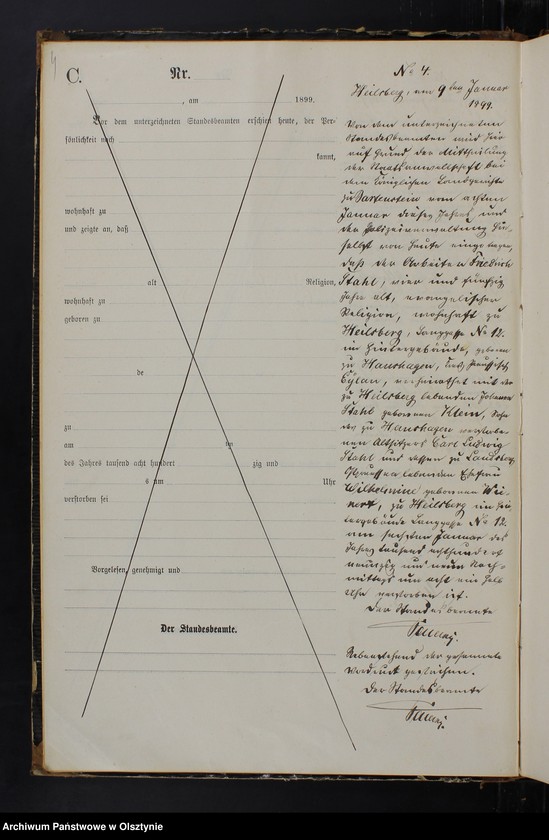 4
C.
Nr.
, am 1899.
Vor dem unterzeichneten Standesbeamten erschien heute, der Per-
sönlichkeit nach
kannt,
wohnhaft zu
und zeigte an, daß
alt Religion,
wohnhaft zu
geboren zu
de
zu
am ten
des Jahres tausend acht hundert zig und
s um Uhr
verstorben sei
Vorgelesen, genehmigt und
Der Standesbeamte.
No 4.
Heilsberg, am 9ten Januar
1899.
Von dem unterzeichneten
Standesbeamten wird hier
auf Grund der Mittheilung
der Staatsanwaltschaft bei
dem Königlichen Landgerichte
zu Bartenstein vom achten
Januar dieses Jahres und
der Polizeiverwaltung hie-
selbst von heute eingetragen,
daß der Arbeiter Friedrich
Stahl, vier und fünfzig
Jahre alt, evangelischer
Religion, wohnhaft zu
Heilsberg, Langgasse No 12.
im Hintergebäude, geboren
zu Hanshagen, Kreis Preußisch
Eylau, verheirathet mit der
zu Heilsberg lebenden Johanna
Stahl geborenen Klein, Sohn
des zu Hanshagen verstorbe-
nen Altsitzers Carl Ludwig
Stahl und dessen zu Landsberg
Ostpreußen lebenden Ehefrau
Wilhelmine geborenen
zu Heilsberg im Hin-
tergebäude Langgasse No 12.
am sechsten Januar des
Jahres tausend achthundert
neunzig und neun Nach-
mittags um acht ein halb
Uhr gestorben ist.
Der Standesbeamte
Nebenstehend der gesammte
Vordruck gestrichen.
Der Standesbeamte
Archiwum Państwowe w Olsztynie